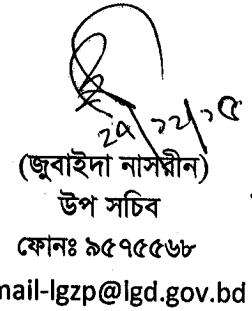 (জুবাইদা নাসরীন)
উপ সচিব
ফোনঃ ৯৫৭৫৫৬৮
mail-lgzp@lgd.gov.bd